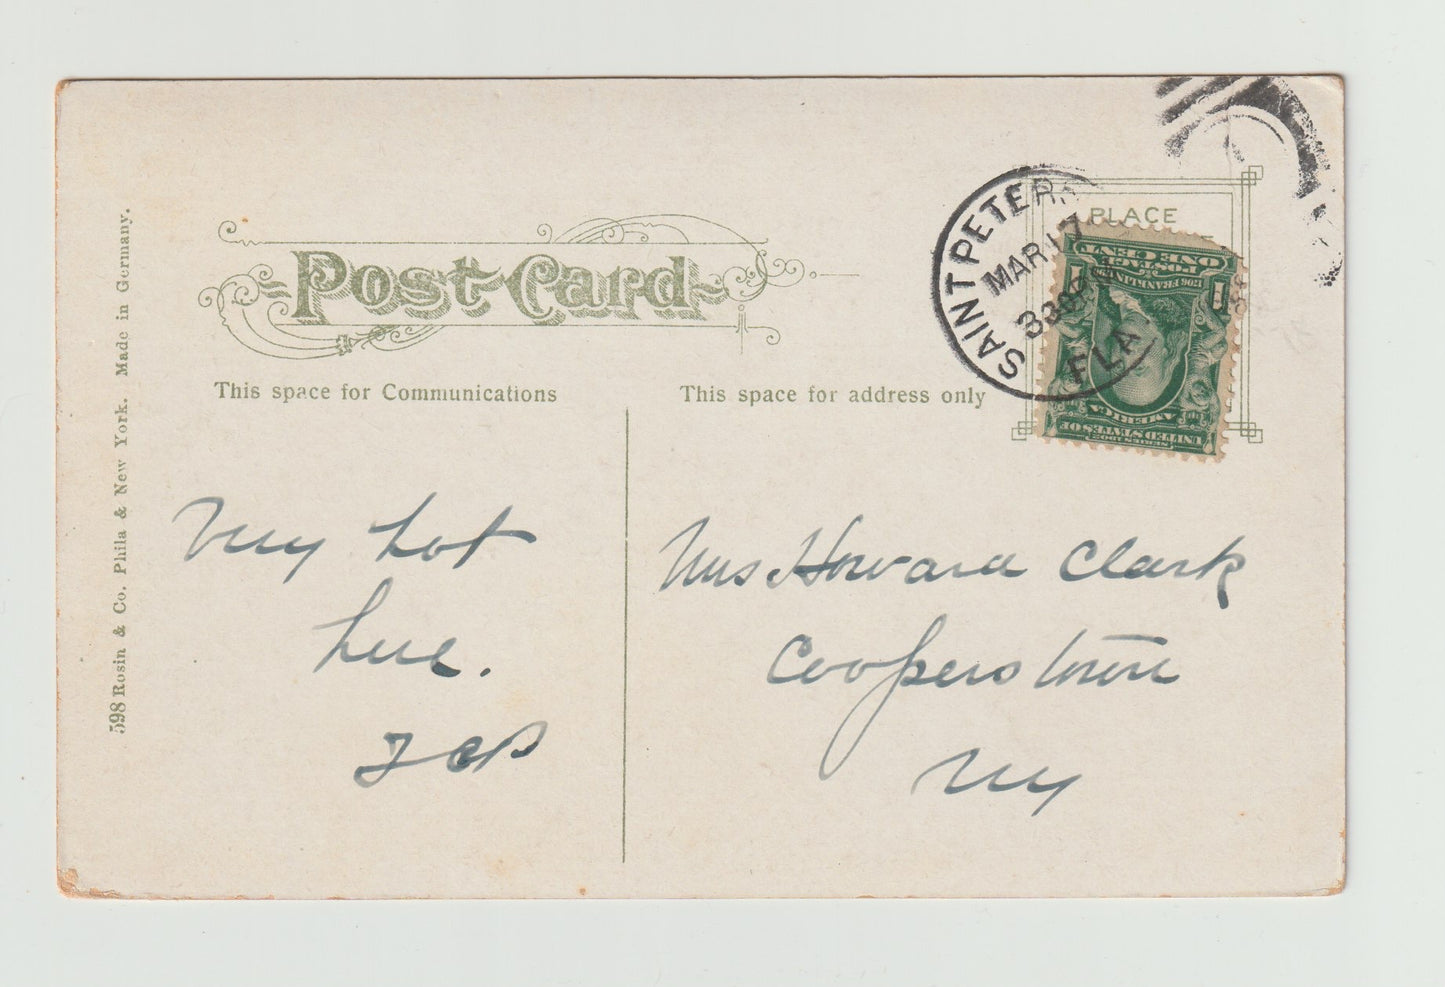 Post Card
This space for Communications
This space for address only
PLACE
SAINT PETER
MAR 17
330 PM
FLA
SERIES 1902
UNITED STATES OF
AMERICA
1706 FRANKLIN 1790
POSTAGE
1 ONE CENT 1
Very hot
here.
Mrs Howard Clark
Cooperstown
NY
598 Rosin & Co. Phila & New York. Made in Germany.